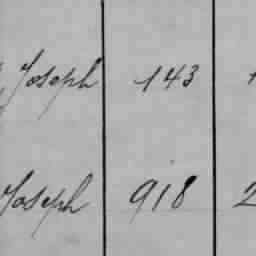 Joseph 143
Joseph 918 2